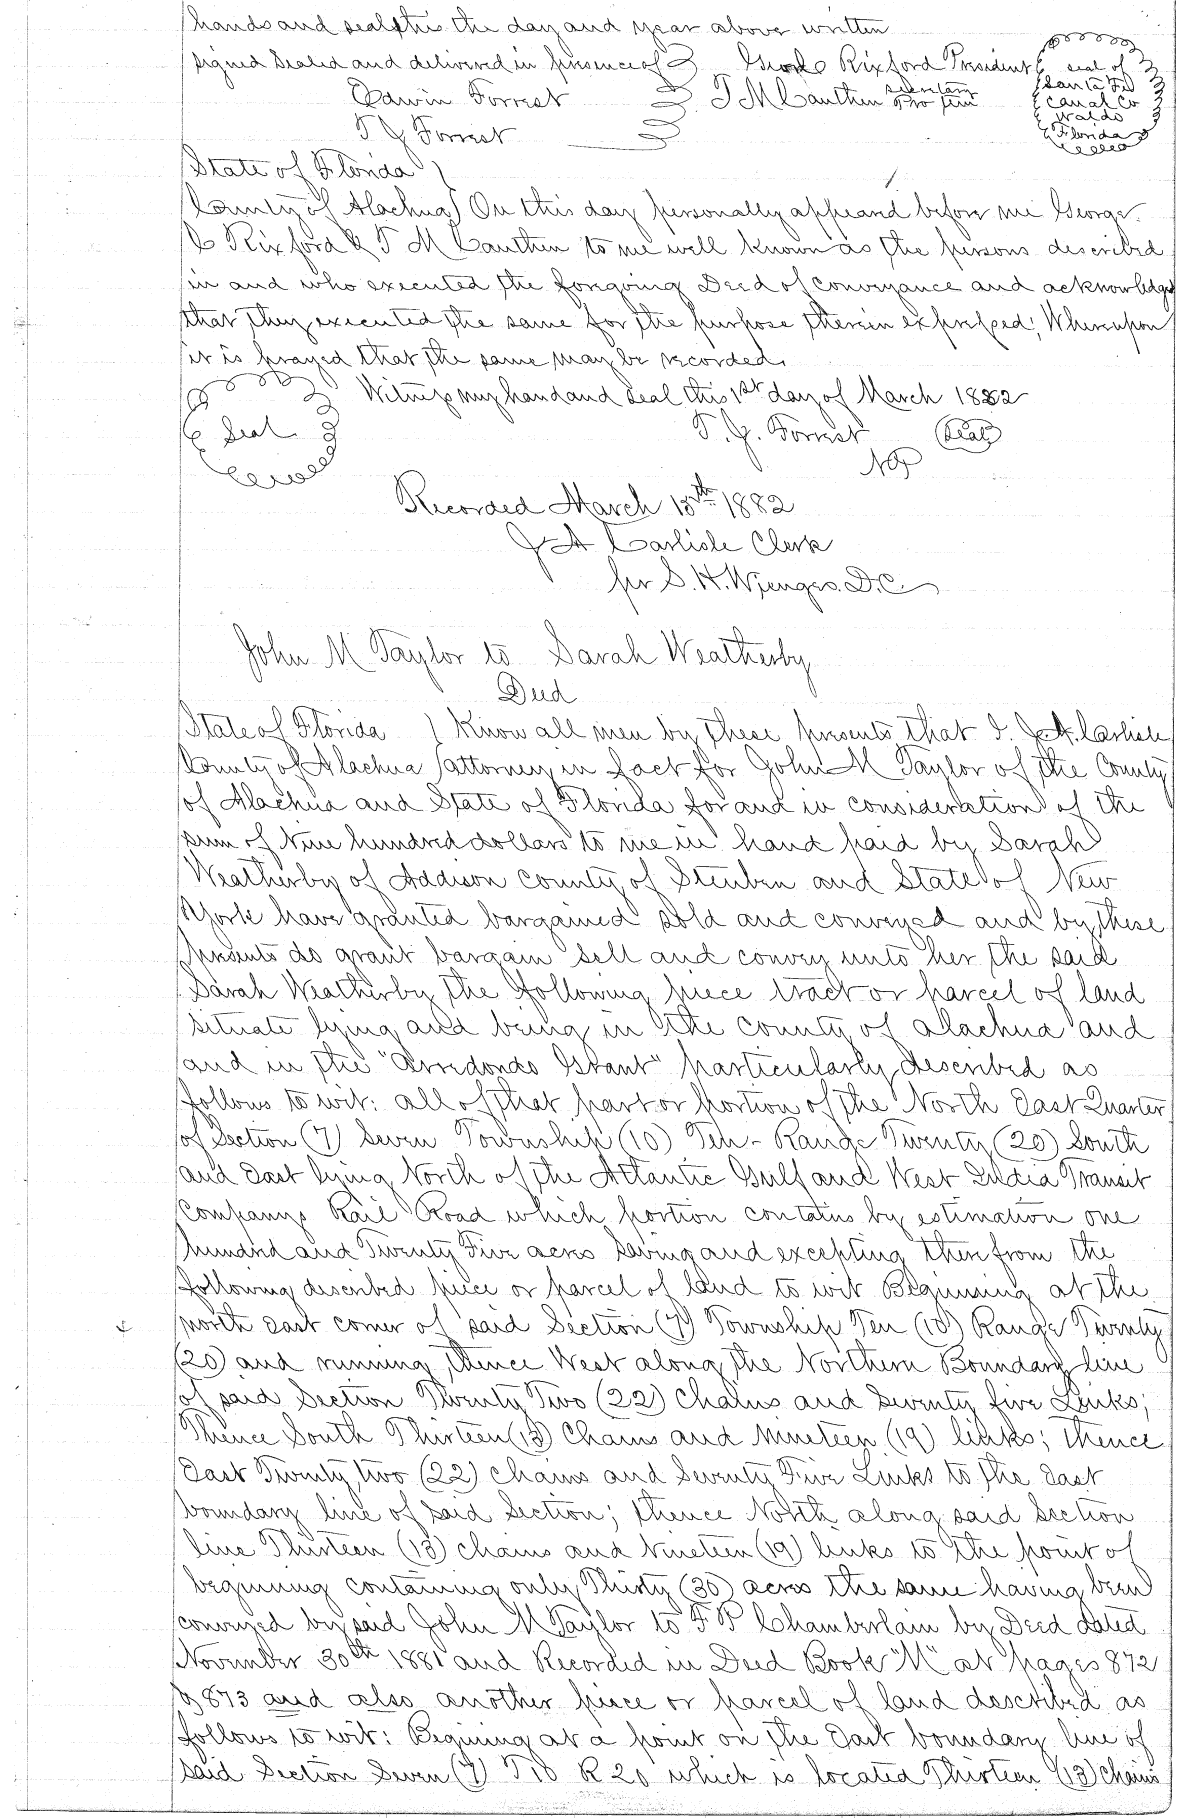 hands and seals this the day and year above written
signed Sealed and delivered in presence of George Rixford President
Edwin Forrest T M Cauthen Secretary Pro tem
T J Forrest
seal of Santa Fe Canal Co Waldo Florida
State of Florida
County of Alachua On this day personally appeared before me George
C Rixford & T M Cauthen to me well known as the persons described
in and who executed the foregoing Deed of conveyance and acknowledged
that they executed the same for the purpose therein expressed; Whereupon
it is prayed that the same may be recorded.
Witness my hand and seal this 1st day of March 1882
Seal T. J. Forrest (Seal)
NP
Recorded March 15th 1882
J A Carlisle Clerk
per S. H. Wienges. D.C.
John M Taylor to Sarah Weatherby
Deed
State of Florida Know all men by these presents that I. J. A. Carlisle
County of Alachua attorney in fact for John M Taylor of the County
of Alachua and State of Florida for and in consideration of the
sum of Nine hundred dollars to me in hand paid by Sarah
Weatherby of Addison County of Steuben and State of New
York have granted bargained sold and conveyed and by these
presents do grant bargain sell and convey unto her the said
Sarah Weatherby the following piece tract or parcel of land
situate lying and being in the county of Alachua and
and in the "Arredondo Grant" particularly described as
follows to wit: all of that part or portion of the North East Quarter
of Section (7) Seven Township (10) Ten - Range Twenty (20) South
and East lying North of the Atlantic Gulf and West India Transit
Companys Rail Road which portion contains by estimation one
hundred and Twenty Five acres Saving and excepting there from the
following described piece or parcel of land to wit Beginning at the
north east corner of said Section (7) Township Ten (10) Range Twenty
(20) and running thence West along the Northern Boundary line
of said Section Twenty Two (22) Chains and Seventy five Links;
Thence South Thirteen (13) Chains and Nineteen (19) links; thence
East Twenty two (22) chains and Seventy Five Links to the East
boundary line of said Section; thence North along said Section
line Thirteen (13) chains and Nineteen (19) links to the point of
beginning containing only Thirty (30) acres the same having been
conveyed by said John M Taylor to F P Chamberlain by Deed dated
November 30th 1881 and Recorded in Deed Book "M" at pages 872
& 873 and also another piece or parcel of land described as
follows to wit: Begining at a point on the East boundary line of
said Section Seven (7) T 10 R 20 which is located Thirteen (13) Chains